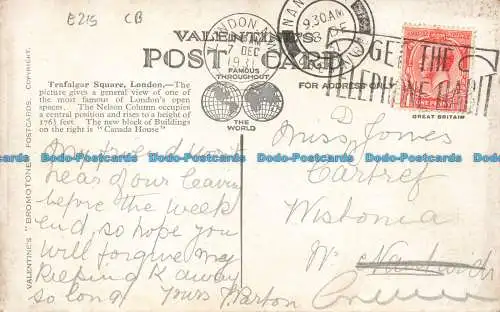 E215 CB
VALENTINE'S
POST CARD
FAMOUS
THROUGHOUT
THE
WORLD
FOR ADDRESS ONLY
LONDON
7 DEC
1931
9.30 AM
8 DE
GET THE
TELEPHONE HABIT
ONE PENNY
GREAT BRITAIN
VALENTINE'S "BROMOTONE" POSTCARDS. COPYRIGHT.
Trafalgar Square, London.—The
picture gives a general view of one of
the most famous of London's open
spaces. The Nelson Column occupies
a central position and rises to a height of
176½ feet. The new block of Buildings
on the right is "Canada House"
My friend won't
hear of our leaving
before the week
end, so hope you
will forgive my
keeping K away
so long. Yours J. Parton
Miss D Jones
Cartref
Wistonia
Nr. Nantwich
Crewe
Dodo-Postcards.com Dodo-Postcards.com Dodo-Postcards.com Dodo-Postcards.com